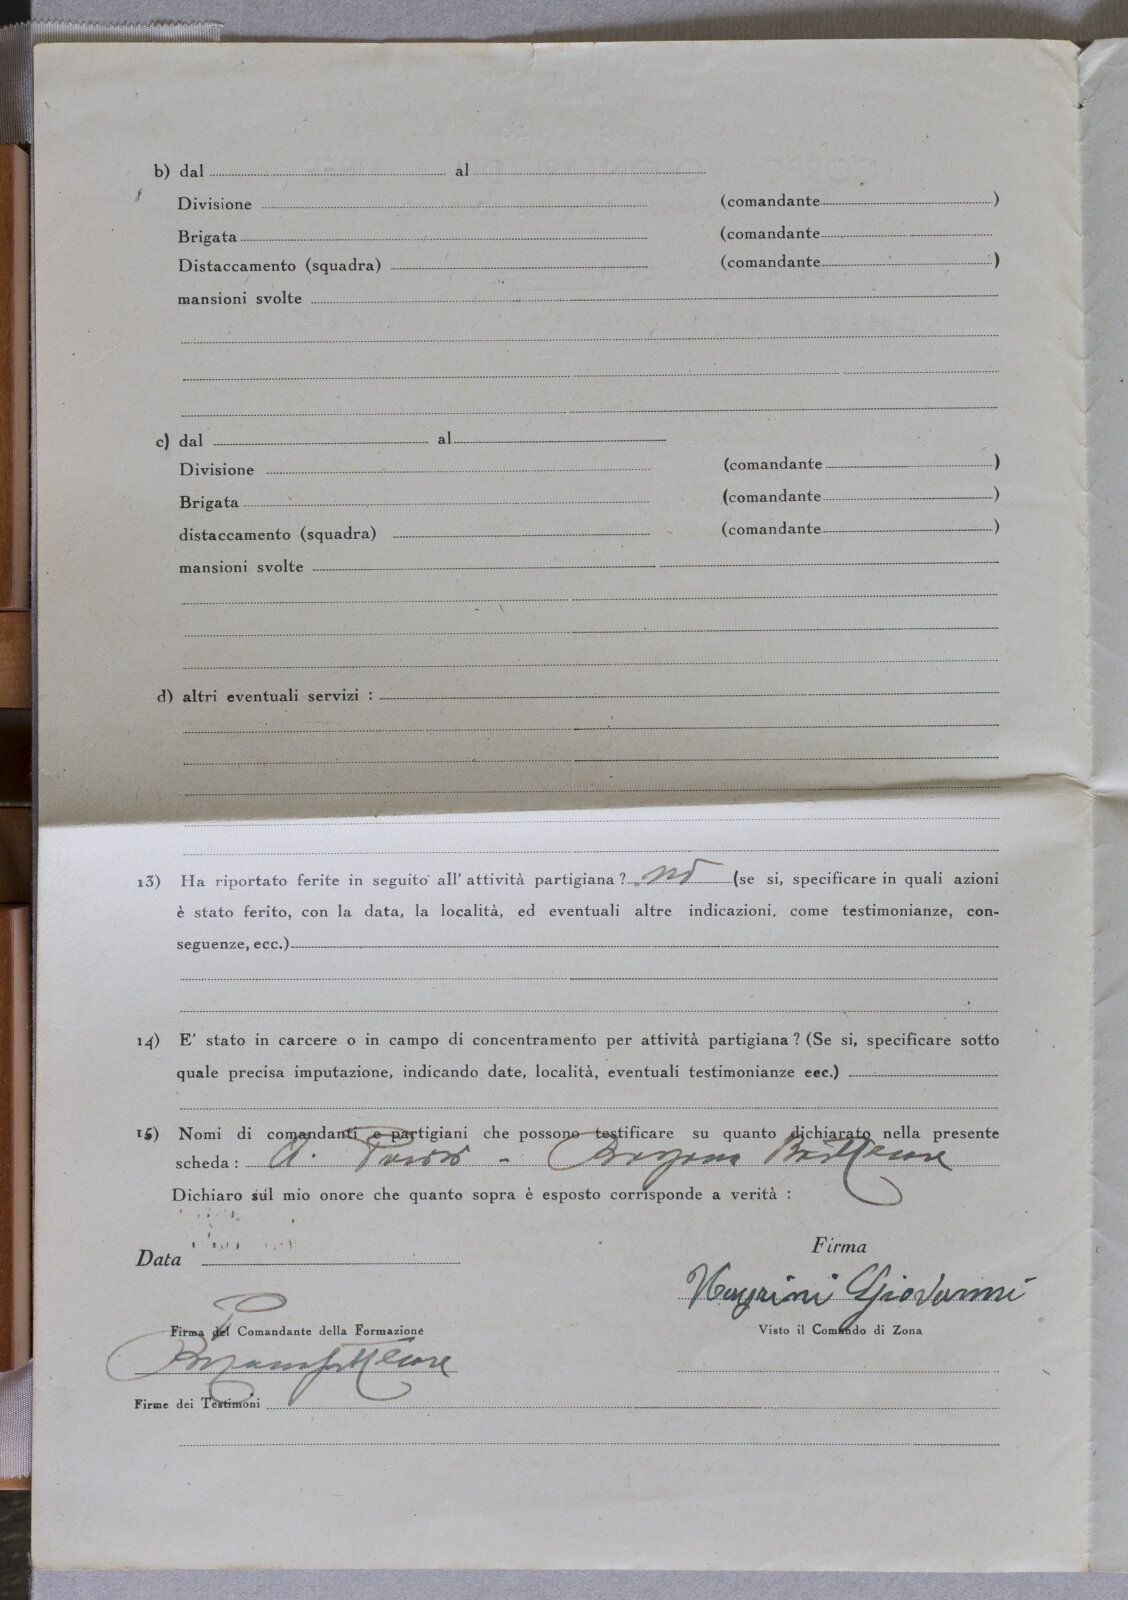 b) dal al
Divisione (comandante )
Brigata (comandante
Distaccamento (squadra) (comandante )
mansioni svolte
c) dal al
Divisione (comandante )
Brigata (comandante )
distaccamento (squadra) (comandante )
mansioni svolte
d) altri eventuali servizi :
13) Ha riportato ferite in seguito all' attività partigiana ? nò (se si, specificare in quali azioni
è stato ferito, con la data, la località, ed eventuali altre indicazioni, come testimonianze, con-
seguenze, ecc.)
14) E' stato in carcere o in campo di concentramento per attività partigiana ? (Se si, specificare sotto
quale precisa imputazione, indicando date, località, eventuali testimonianze ecc.)
15) Nomi di comandanti e partigiani che possono testificare su quanto dichiarato nella presente
scheda : -
Dichiaro sul mio onore che quanto sopra è esposto corrisponde a verità :
Data
Firma
Giovanni
Firma del Comandante della Formazione
Visto il Comando di Zona
Firme dei Testimoni